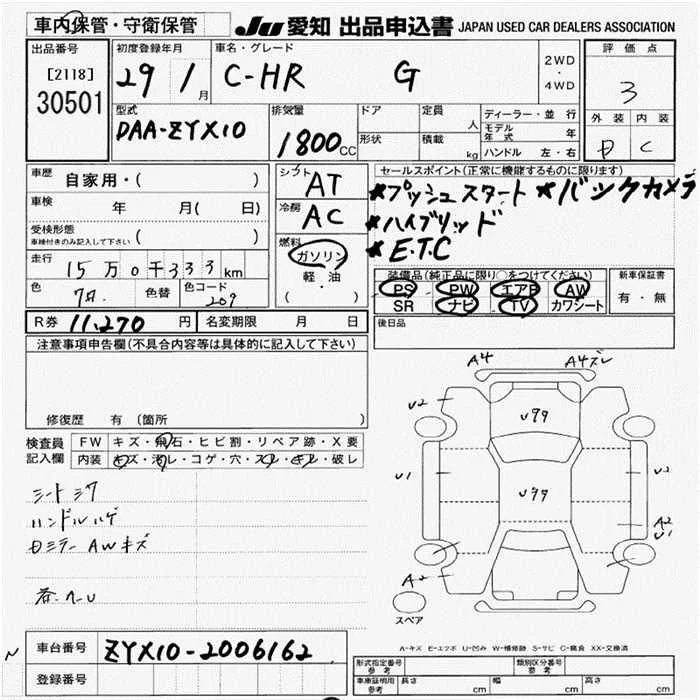 車内保管・守衛保管
JU 愛知 出品申込書 JAPAN USED CAR DEALERS ASSOCIATION
出品番号
[2118]
30501
初度登録年月
29 1月
車名・グレード
C-HR G
2WD
・
4WD
評価点
3
外装 内装
C
型式
DAA-ZYX10
排気量
1800CC
ドア
定員 人
形状
積載 kg
ディーラー・並行
モデル年式 年
ハンドル 左・右
車歴 自家用・( )
車検 年 月( 日)
受検形態
車検付きのみ記入して下さい ( )
走行 15万0千333km
色 色替 色コード 209
R券 11,270円 名変期限 月 日
シフト
AT
冷房
AC
燃料
ガソリン
軽・油
( )
セールスポイント(正常に機能するものに限ります)
★プッシュスタート ★バックカメラ
★ハイブリッド
★E.T.C
装備品(純正品に限り○をつけてください)
PS PW エアB AW
SR ナビ TV カワシート
新車保証書
有・無
後日品
注意事項申告欄(不具合内容等は具体的に記入して下さい)
修復歴 有 (箇所 )
検査員記入欄
FW キズ・飛石・ヒビ割・リペア跡・X要
内装 キズ・汚レ・コゲ・穴・スレ・キレ・破レ
シートシワ
ハンドルハゲ
AWキズ
A4 A4ズレ
U2
Uララ
U1
Uララ
U2
A2
U1
A2
スペア
A-キズ E-エクボ U-凹み W-補修跡 S-サビ C-腐食 XX-交換済
車台番号 ZYX10-2006162
登録番号
型式指定番号
参考
類別区分番号
参考
車庫証明用
参考
長さ cm 幅 cm 高さ cm